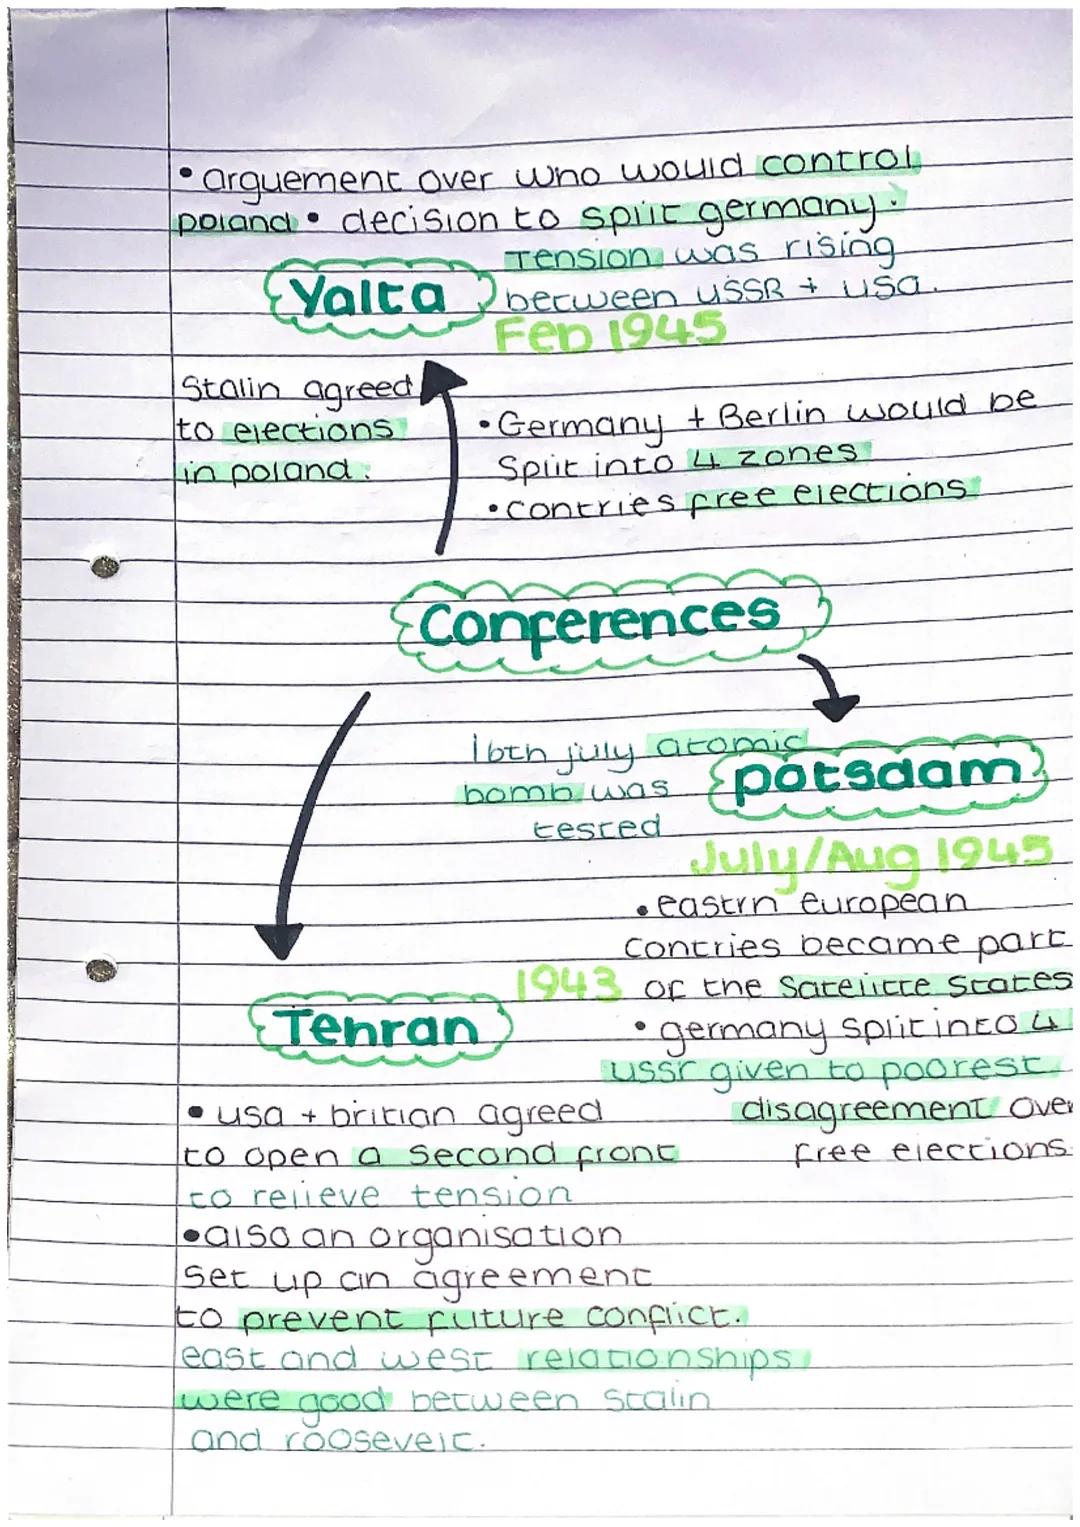 • arguement over who would control
poland • decision to split germany.
Tension was rising
between USSR + usa.
Yalta
Feb 1945
Stalin agreed
to elections
in poland.
• Germany + Berlin would be
Split into 4 zones
• contries free elections
Conferences
16th july atomic
bomb was
tested
potsdam
July/Aug 1945
• eastrn european
contries became part
of the Satelitte States
• germany split into 4
ussr given to poorest.
disagreement over
free elections.
1943
Tehran
• usa + britian agreed
to open a second front
to relieve tension
• also an organisation
set up an agreement
to prevent future conflict.
east and west relationships
were good between stalin
and roosevelt.